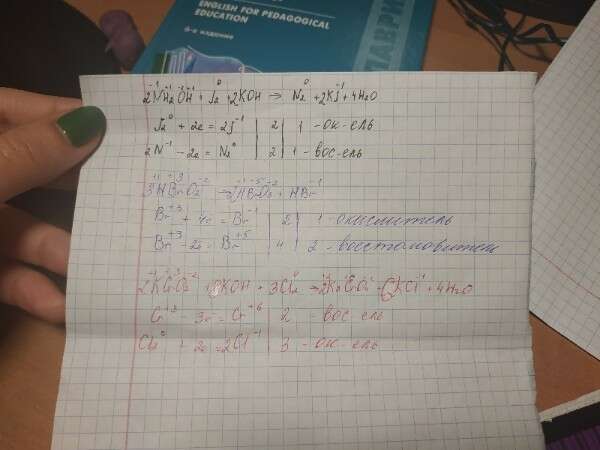 ENGLISH FOR PEDAGOGICAL
EDUCATION
6-е издание
ЛАВРИ
2N⁻¹H₂OH + J₂⁰ + 2KOH → N₂⁰ + 2KJ⁻¹ + 4H₂O
J₂⁰ + 2e = 2J⁻¹ | 2 | 1 - ок-ель
2N⁻¹ - 2e = N₂⁰ | 2 | 1 - вос-ель
3HBr⁺³O₂⁻² → 2HBr⁺⁵O₃⁻² + HBr⁻¹
Br⁺³ + 4e = Br⁻¹ | 2 | 1 - окислитель
Br⁺³ - 2e = Br⁺⁵ | 4 | 2 - восстановитель
+ 8KOH + 3Cl₂ → KCl⁻¹ + 4H₂O
Cr⁺³ - 3e = Cr⁺⁶ | 2 - вос-ель
Cl₂⁰ + 2e = 2Cl⁻¹ | 3 - ок-ель